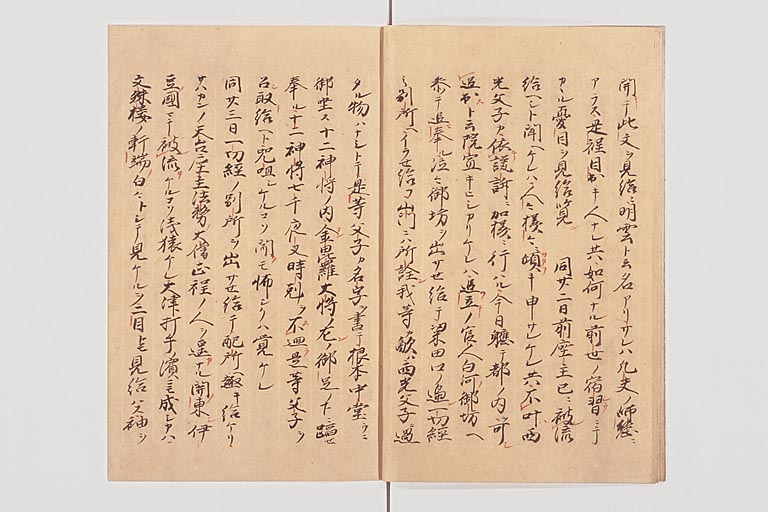 開テ此文ヲ見給ニ明雲ト云名アリサレハ凡夫ノ
アラス是程目出キ人ナレ共如何ナル前世ノ宿習ニテ
カヽル憂目ヲ見給覧 同廿二日前座主已ニ被流
給ヘシト聞ヘケレハ人々様々ニ申サレケレ共不叶西
光父子カ依讒訴加様ニ行ハル今日軈テ都ノ内ヲ可
追出ト云院宣キヒシカリケレハ追立ノ官人白河御坊ヘ
参テ追奉ル泣々御坊ヲ出サセ給テ粟田口ノ邊一切経
ノ別所ヘイラセ給フ山門ニハ所詮我等カ敵ハ西光父子ニ過
タル物ハナシトテ是等父子カ名字ヲ書テ根本中堂ニ
御坐ス十二神将ノ内金毘羅大将ノ左ノ御足ノ下ニ蹈セ
奉ル十二神将七千夜叉時剋ヲ不廻是等父子ヲ
召取給ヘト呪咀シケルコソ聞モ怖シクハ覚ケレ
同廿三日一切経ノ別所ヲ出サセ給テ配所ヘ趣キ給ケリ
サハカンノ天台座主法務大僧正程ノ人ヲ追 関東伊
豆國ニテ被流ケルコソ浅猿ケレ大津打手濱ニモ成シカハ
文殊楼ノ軒端ノ白々トシテ見ケルヲ二目ト見給ハス袖ヲ